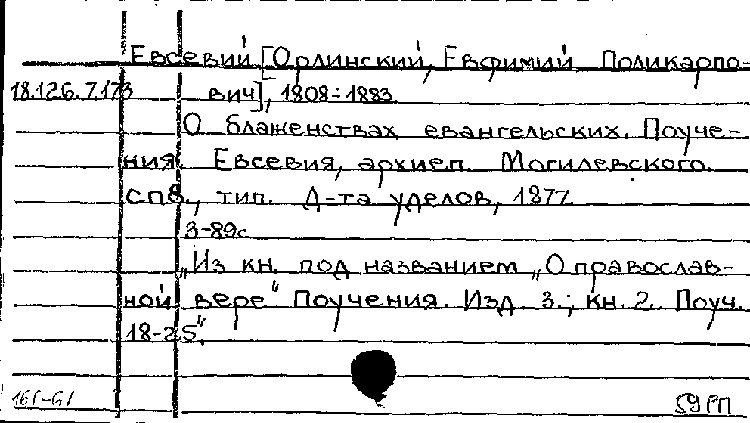 Евсевий [Орлинский, Евфимий Поликарпо-
18.126.7.173 вич], 1808-1883.
О блаженствах евангельских. Поуче-
ния Евсевия, архиеп. Могилевского.
СПб., тип. Д-та уделов, 1877.
3-89с.
„Из кн. под названием „О православ-
ной вере" Поучения. Изд. 3.; кн. 2. Поуч.
18-25".
59 РП